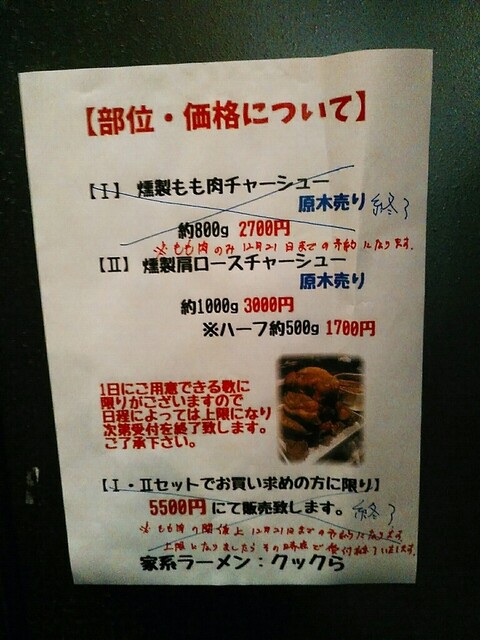 【部位・価格について】
【Ⅰ】 燻製もも肉チャーシュー
原木売り 終了
約800g 2700円
※もも肉のみ12月21日までの予約になります。
【Ⅱ】 燻製肩ロースチャーシュー
原木売り
約1000g 3000円
※ハーフ約500g 1700円
1日にご用意できる数に
限りがございますので
日程によっては上限になり
次第受付を終了致します。
ご了承下さい。
【Ⅰ・Ⅱセットでお買い求めの方に限り】
5500円 にて販売致します。 終了
※もも肉の関係上12月21日までの予約になります
上限となりましたらその時点で受付終了いたします。
家系ラーメン：クックら